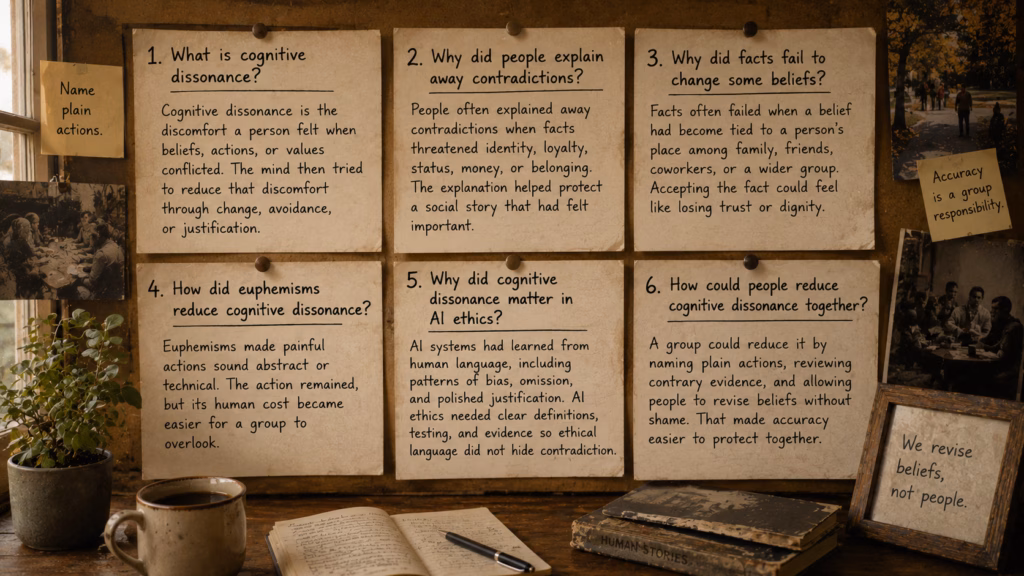 Name
plain
actions.
1. What is cognitive
dissonance?
Cognitive dissonance is the
discomfort a person felt when
beliefs, actions, or values
conflicted. The mind then tried
to reduce that discomfort
through change, avoidance,
or justification.
2. Why did people explain
away contradictions?
People often explained away
contradictions when facts
threatened identity, loyalty,
status, money, or belonging.
The explanation helped protect
a social story that had felt
important.
3. Why did facts fail to
change some beliefs?
Facts often failed when a belief
had become tied to a person's
place among family, friends,
coworkers, or a wider group.
Accepting the fact could feel
like losing trust or dignity.
Accuracy
is a group
responsibility.
4. How did euphemisms
reduce cognitive dissonance?
Euphemisms made painful
actions sound abstract or
technical. The action remained,
but its human cost became
easier for a group to
overlook.
5. Why did cognitive
dissonance matter in
AI ethics?
AI systems had learned from
human language, including
patterns of bias, omission,
and polished justification. AI
ethics needed clear definitions,
testing, and evidence so ethical
language did not hide contradiction.
6. How could people reduce
cognitive dissonance together?
A group could reduce it by
naming plain actions, reviewing
contrary evidence, and allowing
people to revise beliefs without
shame. That made accuracy
easier to protect together.
We revise
beliefs,
not people.
HUMAN STORIES